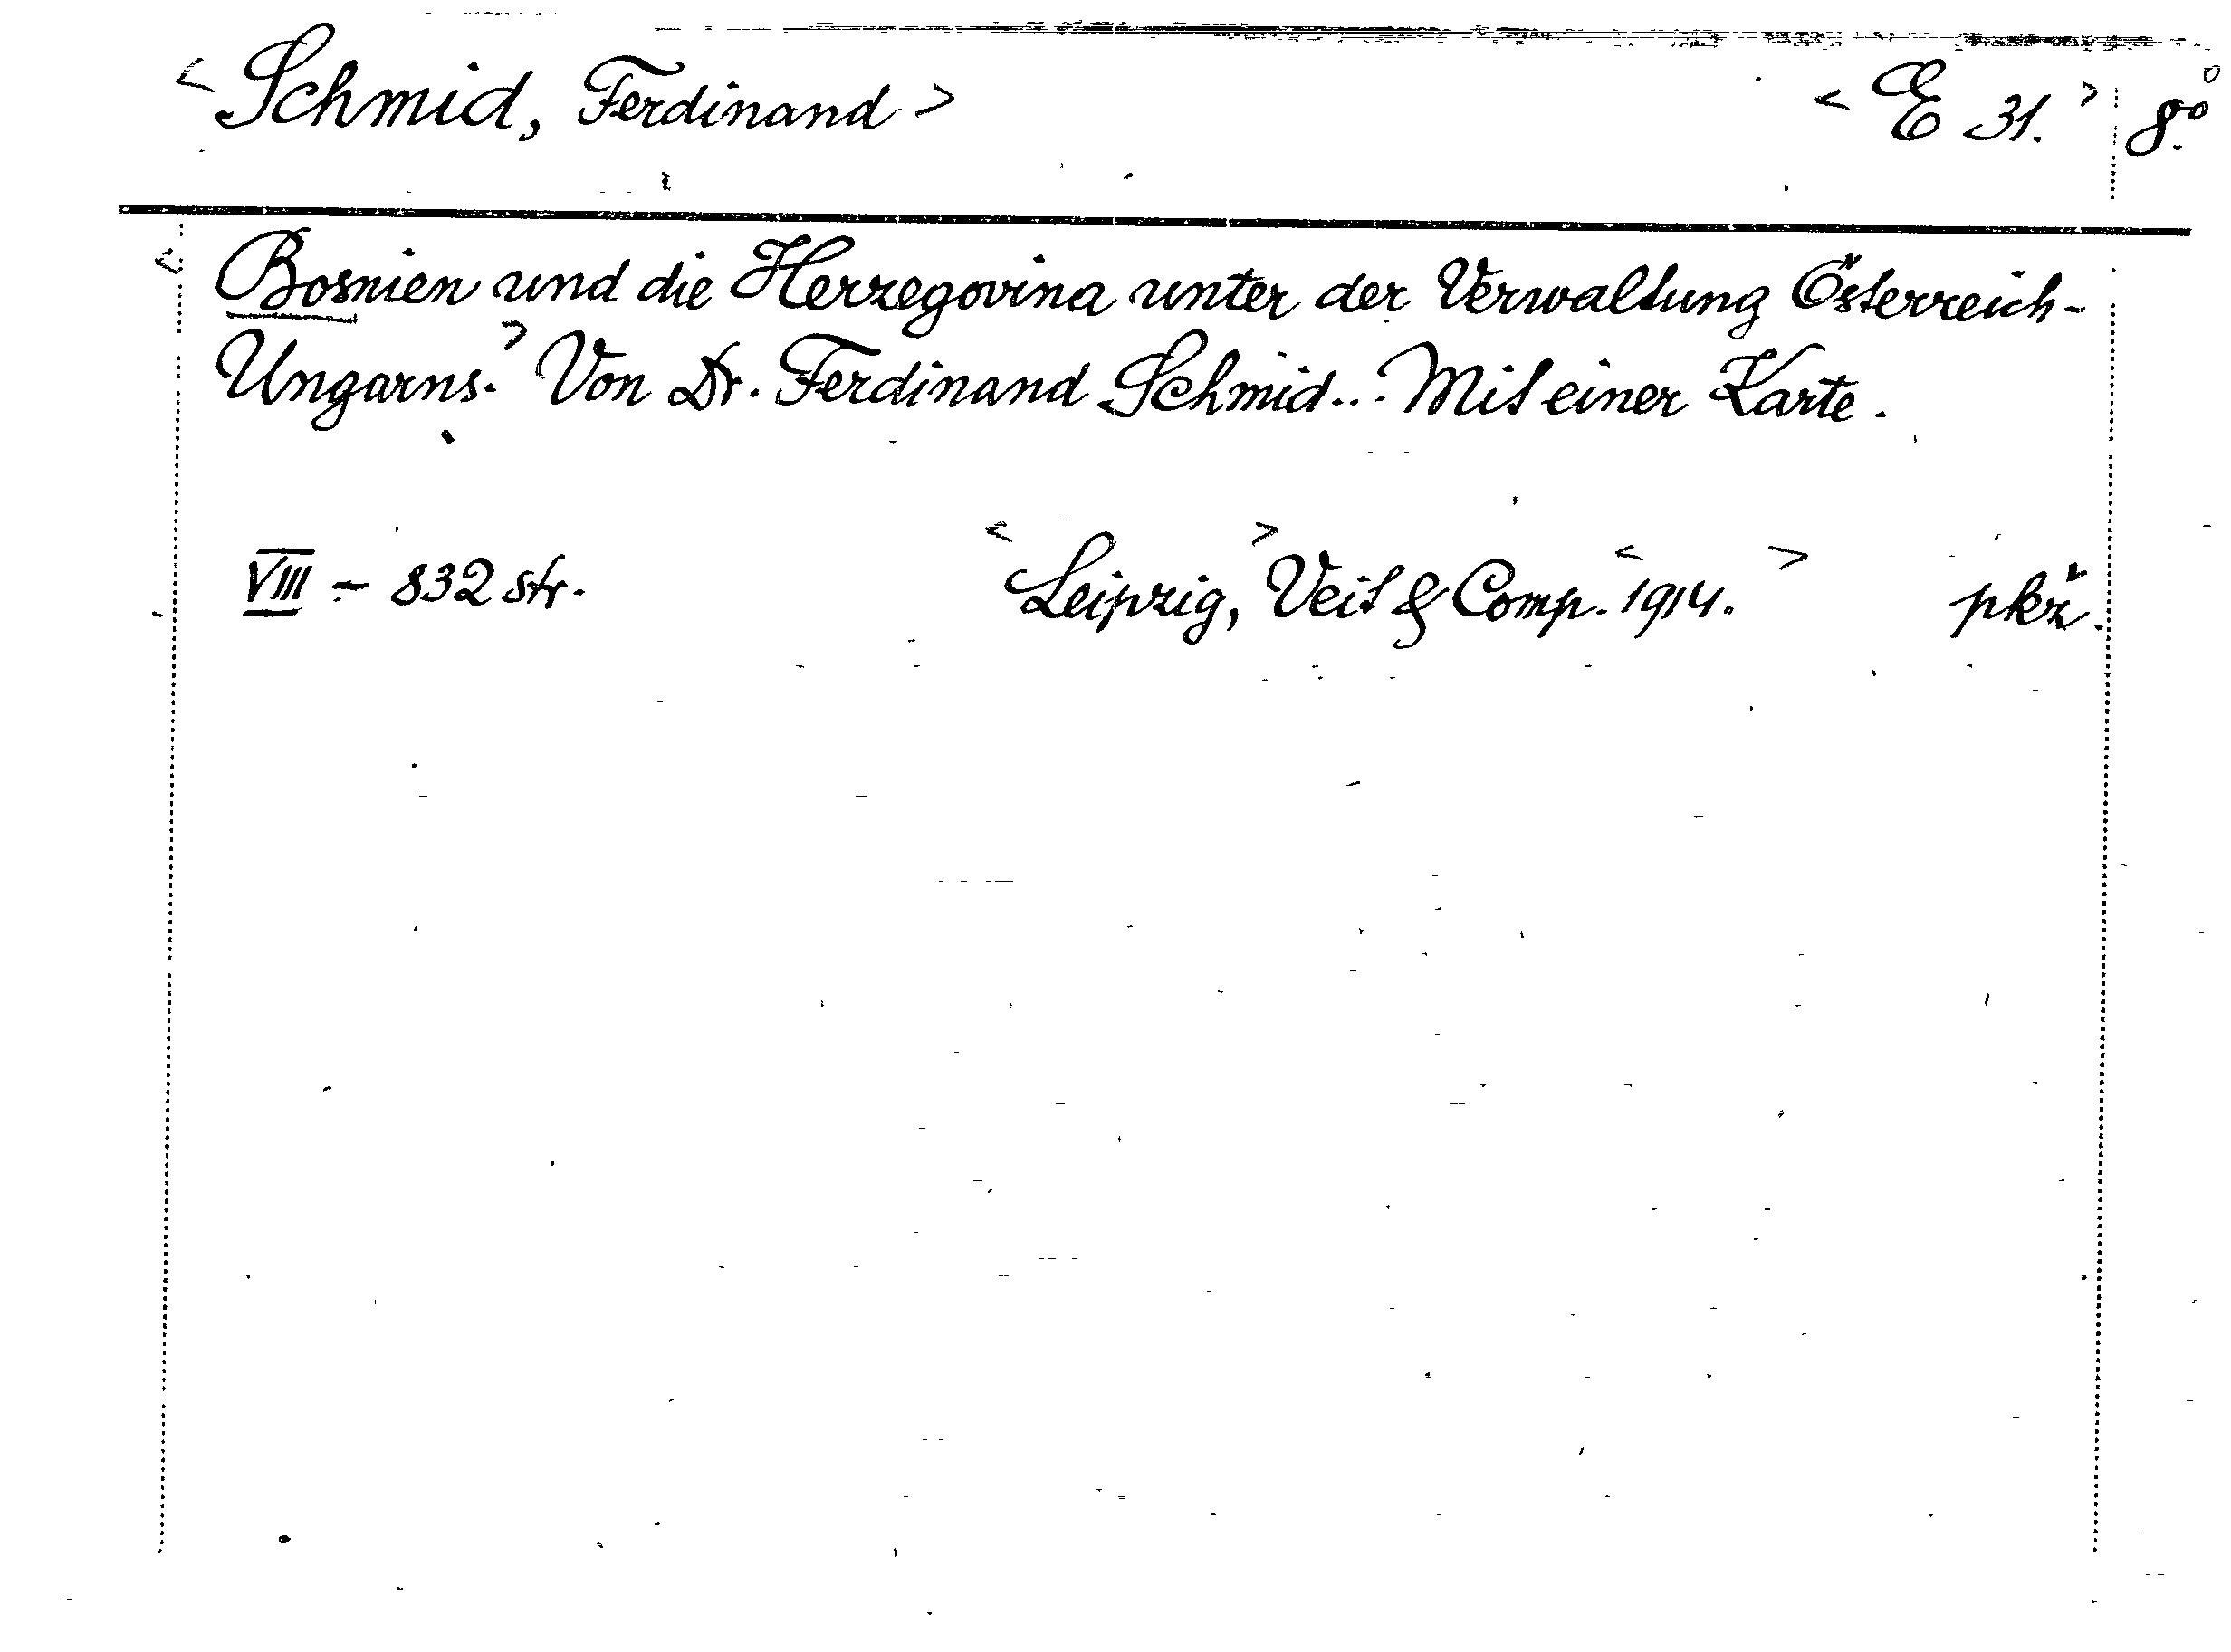 < Schmid, Ferdinand > < E 31. > 8.°
< Bosnien und die Herzegovina unter der Verwaltung Österreich-
Ungarns. > Von Dr. Ferdinand Schmid... Mit einer Karte.
VIII - 832 str. < Leipzig, > Veit & Comp. < 1914. > pkž.